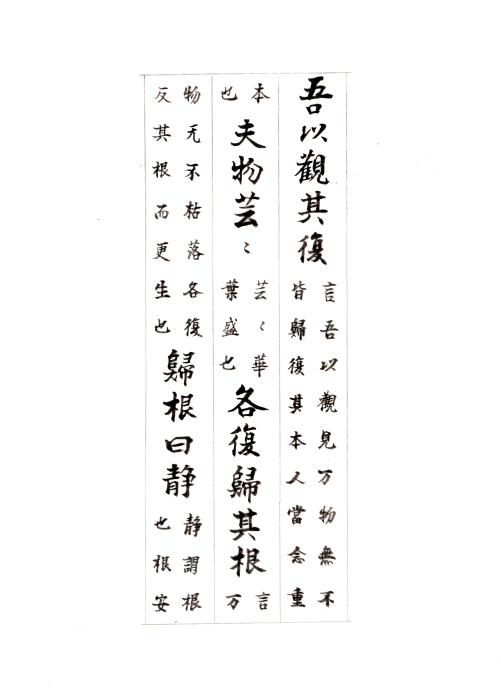 吾以觀其復言吾以觀見万物無不皆歸復其本人當念重
本也夫物芸〻芸〻華葉盛也各復歸其根言万
物无不枯落各復反其根而更生也歸根曰静静謂根也根安